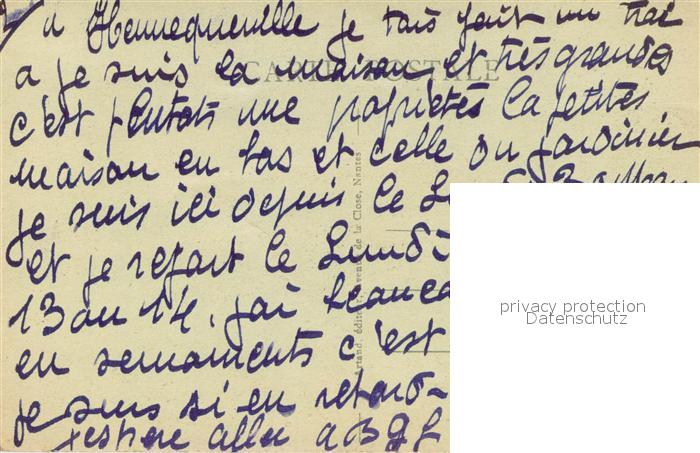 a Hennequeville je tais fait un trai
a je suis la maison et tres grandes
c'est plutots une propriétés la petites
maison en bas et celle du jardinier
je suis ici depuis le
et je repart le Lundi
13 au 14. jai
en ce moments c'est
je suis si en retard-
espere aller a
CARTE POSTALE
Artaud, éditeur, avenue de la Close, Nantes
privacy protection
Datenschutz